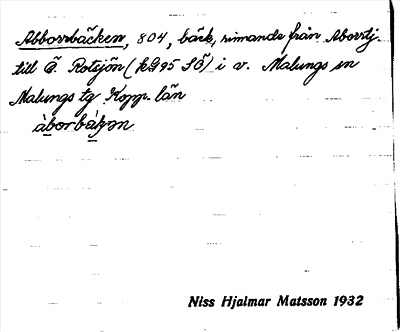 Abborrbäcken, 804, bäck, rinnande från Aborrtj.
till Ö. Rotsjön (k G95 SÖ) i v. Malungs sn
Malungs tg Kopp. län
àborbákən
Niss Hjalmar Matsson 1932